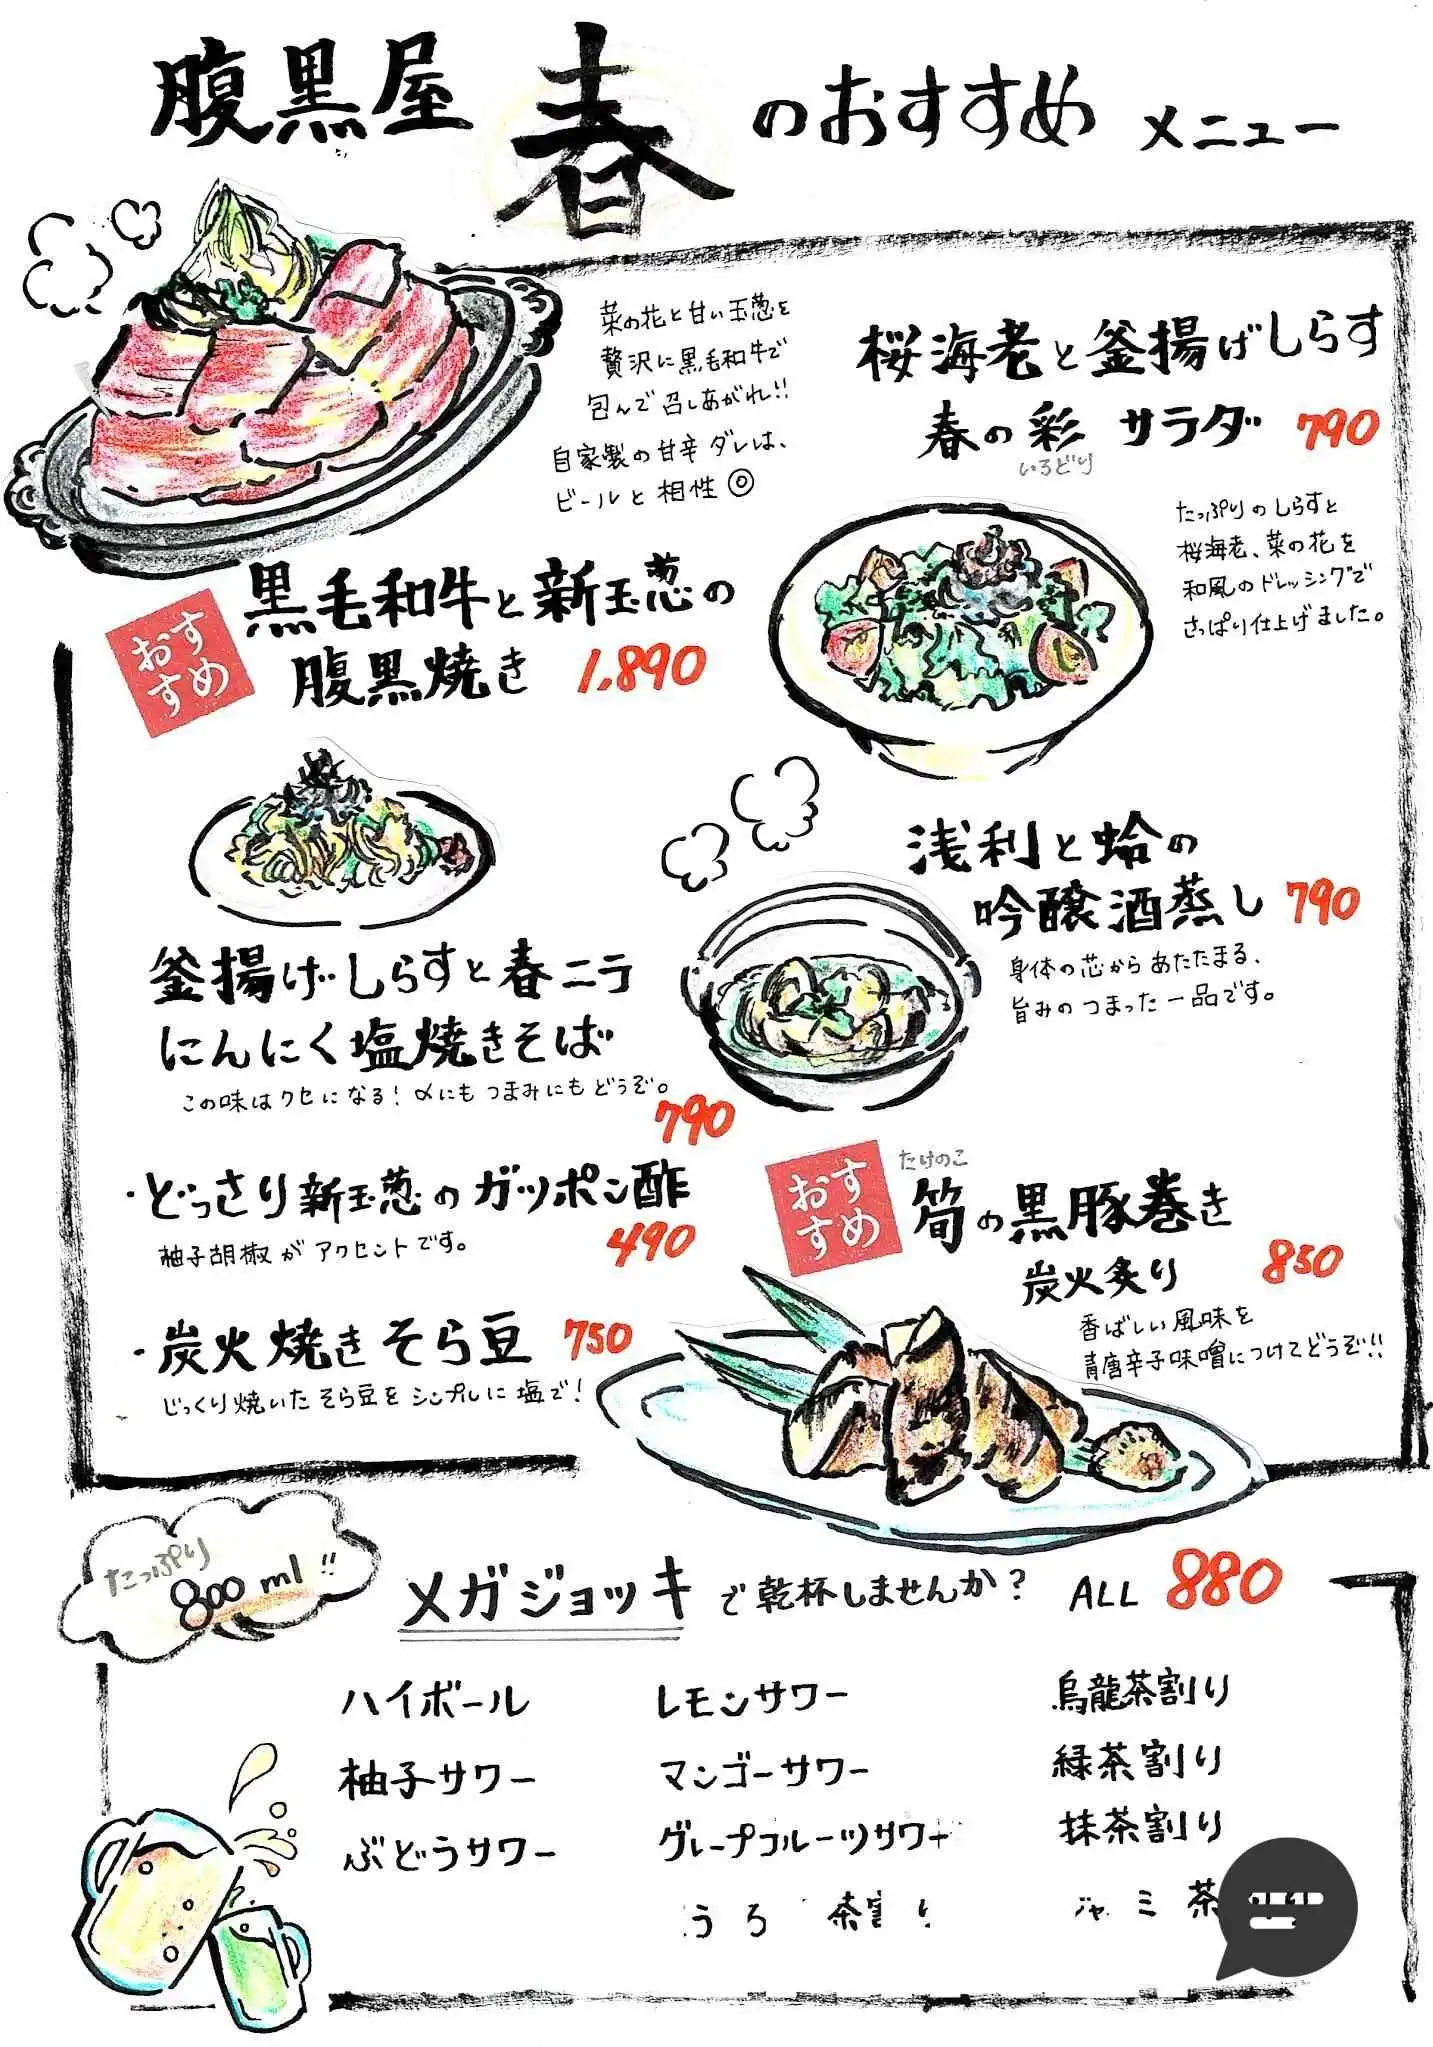 腹黒屋 春のおすすめ メニュー
菜の花と甘い玉葱を
贅沢に黒毛和牛で
包んで召しあがれ!!
自家製の甘辛ダレは、
ビールと相性◎
おすすめ
黒毛和牛と新玉葱の
腹黒焼き 1,890
桜海老と釜揚げしらす
春の彩 サラダ 790
いろどり
たっぷりのしらすと
桜海老、菜の花を
和風のドレッシングで
さっぱり仕上げました。
浅利と蛤の
吟醸酒蒸し 790
身体の芯からあたたまる、
旨みのつまった一品です。
釜揚げしらすと春ニラ
にんにく塩焼きそば
この味はクセになる!〆にもつまみにもどうぞ。
790
・どっさり新玉葱のガツポン酢
柚子胡椒がアクセントです。
490
・炭火焼きそら豆 750
じっくり焼いたそら豆をシンプルに塩で!
おすすめ
たけのこ
筍の黒豚巻き
炭火炙り 850
香ばしい風味を
青唐辛子味噌につけてどうぞ!!
たっぷり
800ml!!
メガジョッキで乾杯しませんか? ALL 880
ハイボール レモンサワー 烏龍茶割り
柚子サワー マンゴーサワー 緑茶割り
ぶどうサワー グレープフルーツサワー 抹茶割り
茶